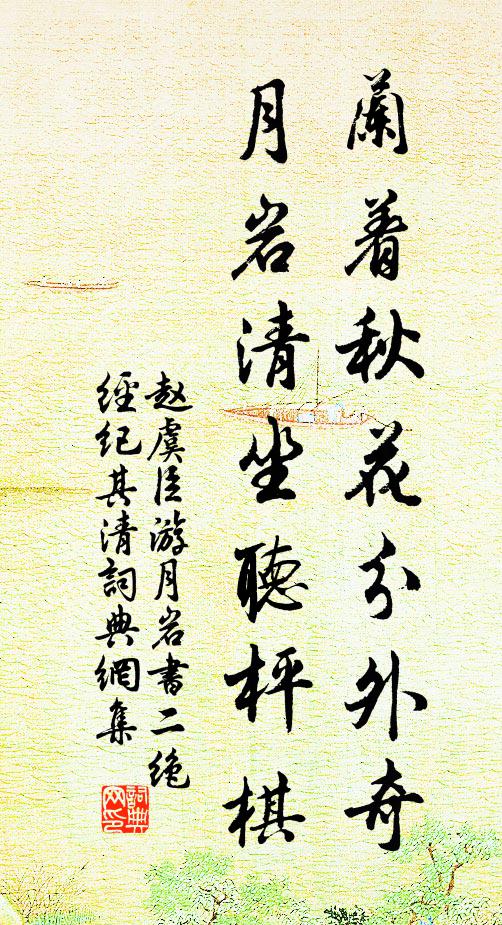 蘭着秋花分外奇
月岩清坐聽枰棋
赵虞臣游月岩書二绝
經纪其清詞典網集
詞典
网印